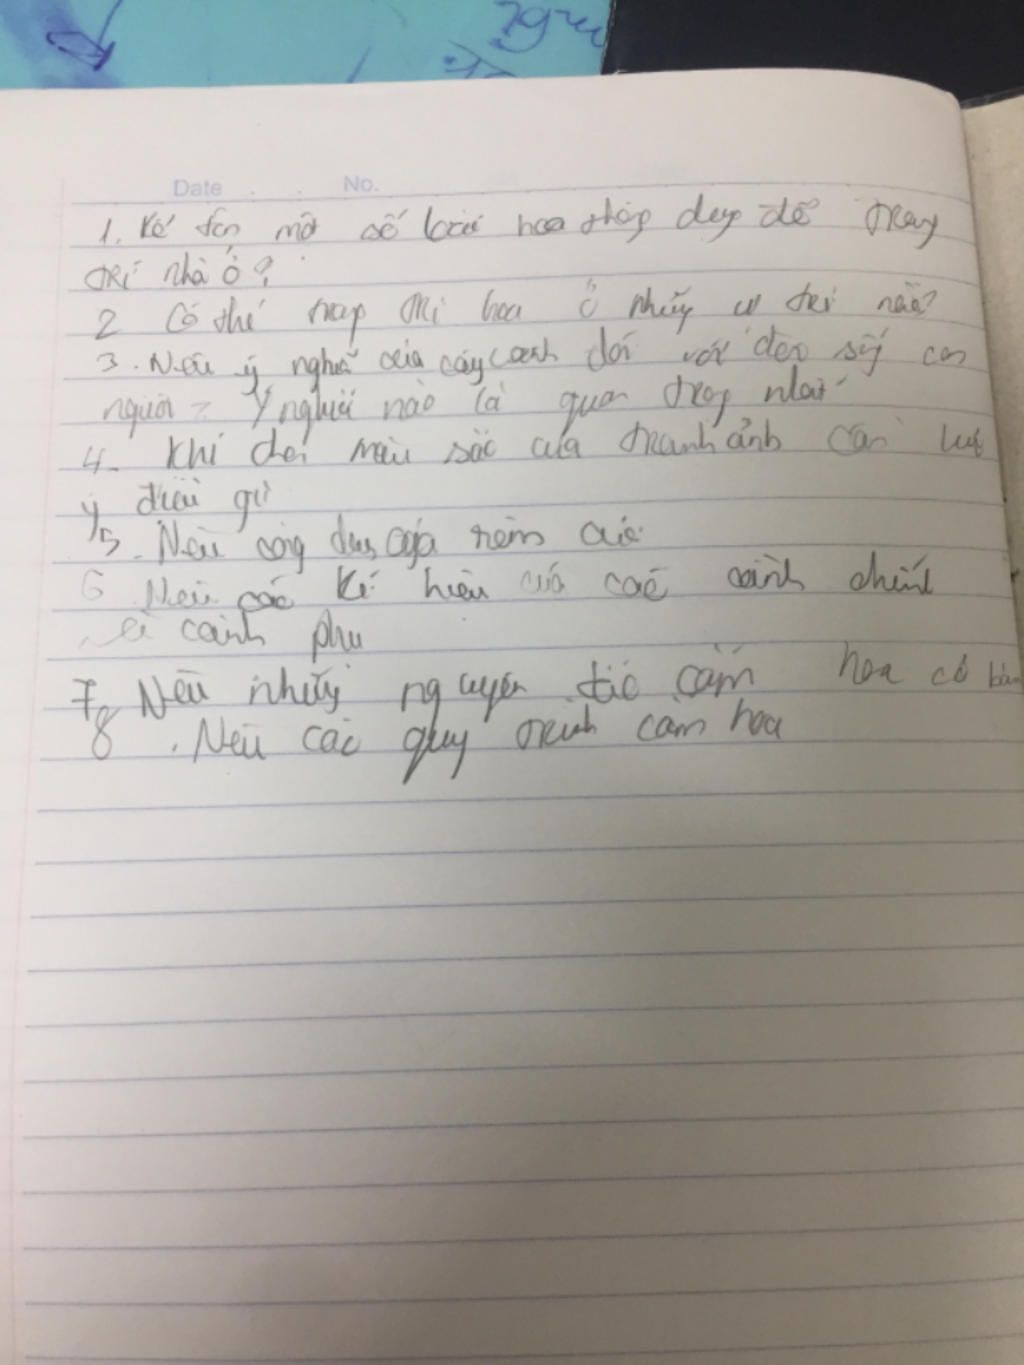 Date No.
1. Kể tên một số loài hoa thường dùng để trang
trí nhà ở?
2 Có thể trang trí hoa ở những vị trí nào?
3. Nêu ý nghĩa của cây cảnh đối với đời sống con
người - Ý nghĩa nào là quan trọng nhất
4- Khi chọn màu sắc của tranh ảnh cần lưu
ý điều gì
5. Nêu công dụng của rèm cửa
6 Nêu các kí hiệu của các cành chính
và cành phụ
7 Nêu những nguyên tắc cắm hoa cơ bản
8. Nêu các quy trình cắm hoa